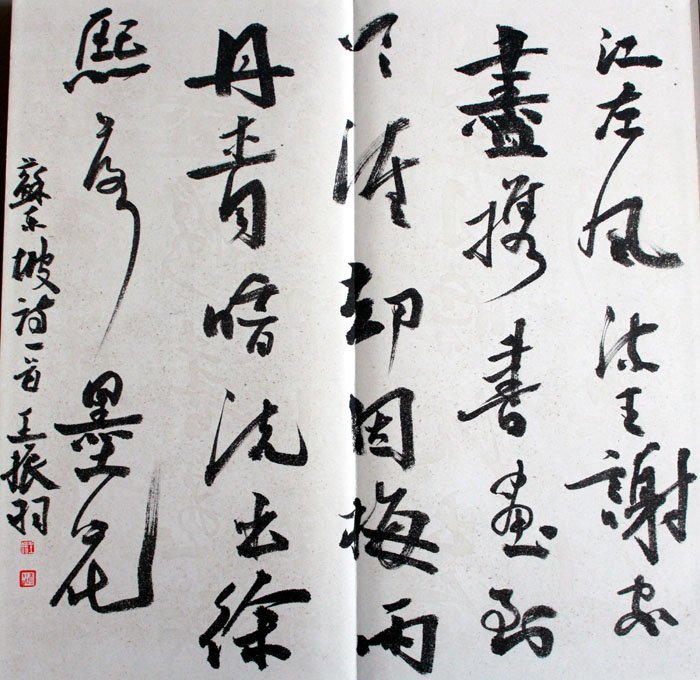 江左風流王謝家
盡携書畫到
天涯却因梅雨
丹青暗洗出徐
熙落墨花
蘇東坡詩一首 王振羽